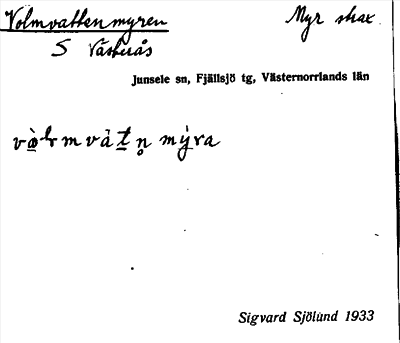 Volmvattenmyren
Myr skax
S Västerås
Junsele sn, Fjällsjö tg, Västernorrlands län
vòlmvàtn mýra
Sigvard Sjölund 1933